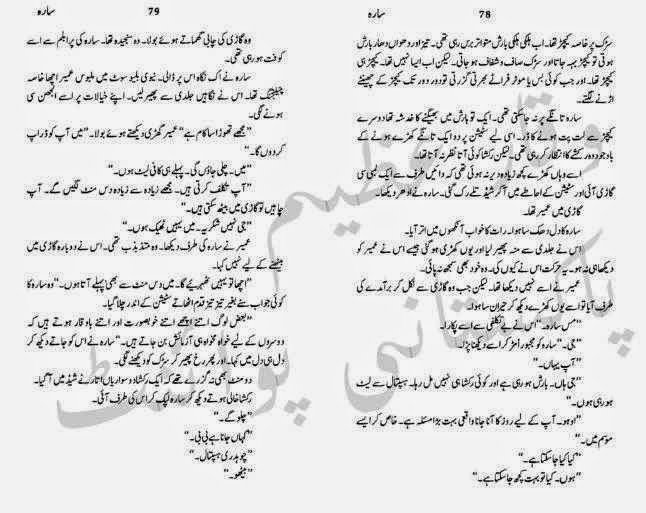 78
سارہ
سڑک پر خاصہ کیچڑ تھا۔ اب ہلکی ہلکی بارش متواتر برس رہی تھی۔ تیز اور دھواں دھار بارش
ہوتی تو کیچڑ بہہ جاتا اور سڑک صاف و شفاف ہو جاتی۔ لیکن اب ایسا نہیں تھا۔ صرف
کیچڑ تھا۔ اور جب کوئی بس یا موٹر فراٹے بھرتی گزرتی تو دور دور تک کیچڑ کے چھینٹے
اڑنے لگتے۔
سارہ تانگے پر نہ جا سکتی تھی۔ ایک تو بارش میں بھیگنے کا خدشہ تھا دوسرے
کیچڑ سے لت پت ہونے کا ڈر۔ اسی لیے سٹیشن پر دو ایک تانگے کھڑے ہونے کے
باوجود وہ رکشے کا انتظار کر رہی تھی۔ لیکن رکشا کوئی آتا نظر نہ آتا تھا۔
اسے وہاں کھڑے کچھ زیادہ دیر نہ ہوئی تھی کہ دائیں طرف سے ایک لمبی سی
گاڑی آئی اور سٹیشن کے احاطے میں آ کر شیڈ تلے رک گئی۔ سارہ نے ادھر دیکھا۔
گاڑی میں عمیر تھا۔
سارہ کا دل دھک سا ہوا۔ رات کا خواب آنکھوں میں اتر آیا۔
اس نے جلدی سے منہ پھیر لیا اور یوں کھڑی ہو گئی جیسے اس نے عمیر کو
دیکھا ہی نہ ہو۔ یہ حرکت اس نے کیوں کی۔ وہ خود بھی سمجھ نہ پائی۔
عمیر نے اسے نہیں دیکھا تھا۔ لیکن جب وہ گاڑی سے نکل کر برآمدے کی
طرف آیا تو اسے یوں کھڑے دیکھ کر حیران سا ہوا۔
”مس سارہ۔“ اس نے بے تکلفی سے اسے پکارا۔
”جی۔“ سارہ کو مجبوراً مڑ کر اسے دیکھنا پڑا۔
”آپ یہاں۔“
”جی ہاں۔ بارش ہو رہی ہے اور کوئی رکشا ہی نہیں مل رہا۔ ہسپتال سے لیٹ
ہو رہی ہوں۔“
”اوہو۔ آپ کے لیے روز کا آنا جانا واقعی بہت بڑا مسئلہ ہے۔ خاص کر ایسے
موسم میں۔“
”کیا کیا جا سکتا ہے۔“
”ہوں۔ کیا تو بہت کچھ جا سکتا ہے۔“
79
سارہ
وہ گاڑی کی چابی گھماتے ہوئے بولا۔ وہ سنجیدہ تھا۔ سارہ کی پرابلم سے اسے
کوفت ہو رہی تھی۔
سارہ نے اک نگاہ اس پر ڈالی۔ نیوی بلیو سوٹ میں ملبوس عمیر اچھا خاصہ
چیلنجنگ تھا۔ اس نے نگاہیں جلدی سے پھیر لیں۔ اپنے خیالات پر اسے الجھن سی
ہونے لگی۔
”مجھے تھوڑا سا کام ہے“ عمیر گھڑی دیکھتے ہوئے بولا۔ ”میں آپ کو ڈراپ
کر دوں گا۔“
”میں۔ چلی جاؤں گی۔ پہلے ہی کافی لیٹ ہوں۔“
”آپ تکلف کرتی ہیں۔ مجھے زیادہ سے زیادہ دس منٹ لگیں گے۔ آپ
چاہیں تو گاڑی میں بیٹھ سکتی ہیں۔“
”جی نہیں شکریہ۔ میں یہیں ٹھیک ہوں۔“
عمیر نے سارہ کی طرف دیکھا۔ وہ متذبذب تھی۔ اس نے دوبارہ گاڑی میں
بیٹھنے کے لیے نہیں کہا۔
”اچھا تو یہیں ٹھہریئے گا۔ میں دس منٹ سے بھی پہلے آتا ہوں۔“ وہ سارہ کا
کوئی جواب سنے بغیر تیز تیز قدم اٹھاتے سٹیشن کے اندر چلا گیا۔
”بعض لوگ اتنے اچھے اتنے خوبصورت اور اتنے باوقار ہوتے ہیں کہ
دوسروں کے لیے خواہ مخواہ ہی آزمائش بن جاتے ہیں۔“ سارہ نے اس کو جاتے دیکھ کر
دل ہی دل میں کہا۔ اور پھر رخ پھیر کر سڑک کو دیکھنے لگی۔
دو منٹ بھی نہ گزرے تھے کہ ایک رکشا دو سواریاں اتارنے شیڈ میں آ گیا۔
رکشا خالی ہوتے دیکھ کر سارہ لپک کر اس کی طرف آئی۔
”چلو گے۔“
”کہاں جانا ہے بی بی۔“
”چوہدری ہسپتال۔“
”بیٹھو۔“
پاکستانی پوائنٹ